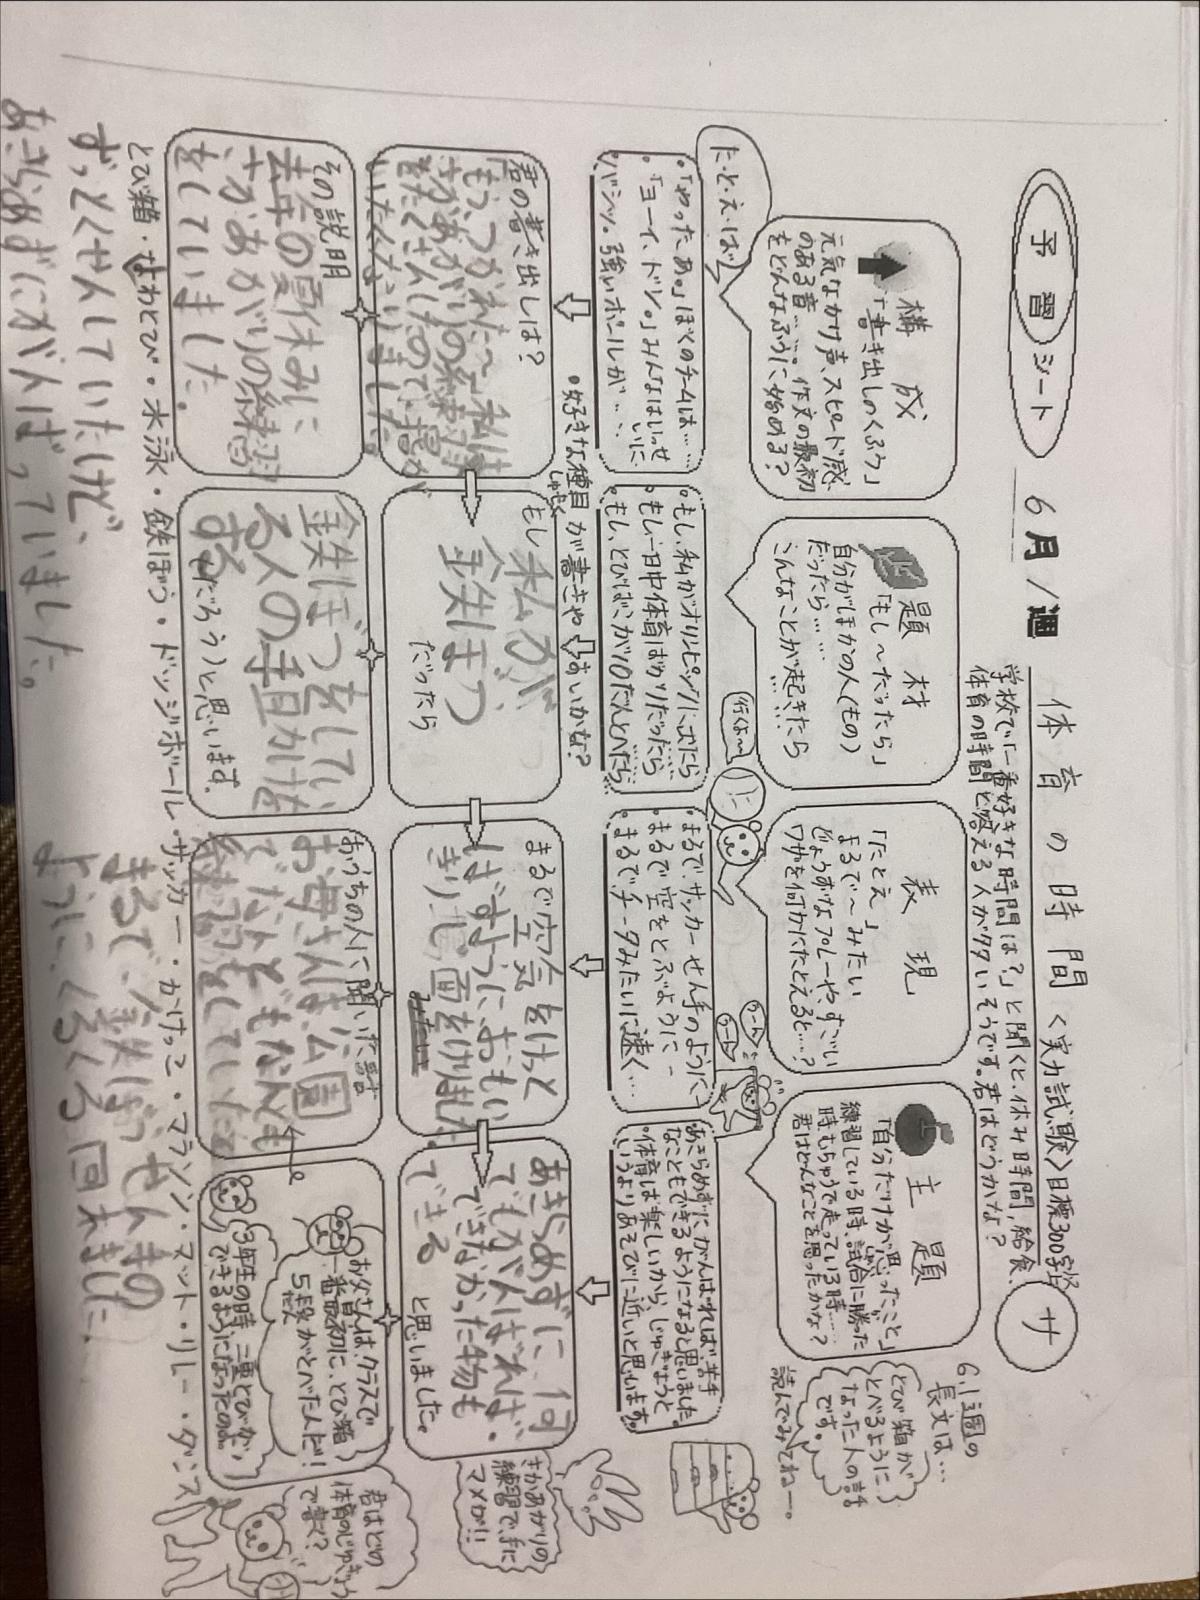 予習シート
6月1週
体育の時間
<実力試験>目標300字
サ
学校で「一番好きな時間は?」と聞くと、休み時間、給食、
体育の時間と答える人が多いそうです。君はどうかな?
構成
「書き出しのくふう」
元気なかけ声、スピード感
のある音…。作文の最初
をどんなふうに始める?
た・と・え・ば
・「やったあ。」ぼくのチームは……
・「ヨーイ、ドン。」みんなはいっせいに
・バシッ。強いボールが……
君の書き出しは?
「もう、つかれた〜。」私は
さかあがりの練習
をたくさんしたので指が
いたくなりました。
その説明
去年の夏休みに
さかあがりの練習
をしていました。
題材
「もし〜だったら」
自分がほかの人(もの)
だったら……
こんなことが起きたら
……
・もし、私がオリンピックに出たら
・もし一日中体育ばかりだったら
・もし、とびばこが10だんとべたら
もし
私が
鉄ぼう
だったら
鉄ぼうをしてい
る人の手助けを
する
(だろう)と思います。
表現
「たとえ」
まるで〜みたい
じょうずなプレーや、すごい
ワザを何かにたとえると…?
・まるで、サッカーせん手のように…
・まるで空をとぶように…
・まるでチータみたいに速く…
まるで空気をけっと
ばすように、おもい
きり地面をけりました
おうちの人に聞いた話
お母さんは、公園
でなんどもなんども
練習をしていた
主題
「自分だけが思ったこと」
練習している時、試合に勝った
時もちゅうで走っている時……
君はどんなことを思ったかな?
・あきらめずに、がんばれば、苦手
なこともできるようになると思いました。
・体育は楽しいから、じゅぎょうと
いうよりあそびに近いと思います。
あきらめずに、何
でもがんばれば、
できなかった物も
できる
と思いました。
お父さんは、クラスで
一番最初に、とび箱
5段がとべた人だ!!
3年生の時、二重とびが、
できるようになったのよ。
行くよ〜
6.1週の
長文は…
とび箱が
とべるように
なった人の話
です。
読んでみてね〜。
さかあがりの
練習で、手に
マメが!!
君はどの
体育のじゅぎょう
で書く?
・好きな種目が書きやすいかな?
とび箱・なわとび・水泳・鉄ぼう・ドッジボール・サッカー・かけっこ・マラソン・マット・リレー・ダンス
ずっとくせんしていたけど、
あきらめずにがんばっていました。
まるで、鉄ぼうせん手の
ように、くるくる回れました。